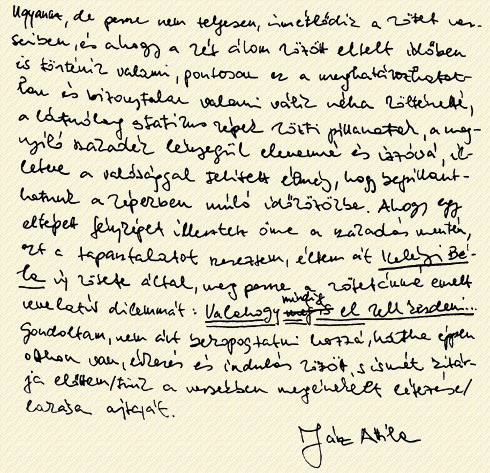 Ugyanaz, de persze nem teljesen, ismétlődik a kötet ver-
seiben, és ahogy a két álom között eltelt időben
is történik valami, pontosan ez a meghatározhatat-
lan és bizonytalan valami válik néha költészetté,
a látszólag statikus képek közti pillanatok, a meg-
nyíló szakadék lényegül elevenné és izzóvá, il-
letve a valósággal telített élmény, hogy bepillant-
hatunk a képekben múló időközökbe. Ahogy egy
eltépett fényképet illesztek össze a szakadás mentén,
azt a tapasztalatot kerestem, éltem át Kelebi Bé-
la új kötete által, meg persze, a kötetcímmé emelt
revelatív dilemmát: Valahogy mindig el kell kezdeni...
Gondoltam, nem árt bekopogtatni hozzá, hátha éppen
otthon van, érkezés és indulás között, s ismét kitár-
ja előttem/tünk a versekben megénekelt létezése/
lakása ajtaját.
Jász Attila